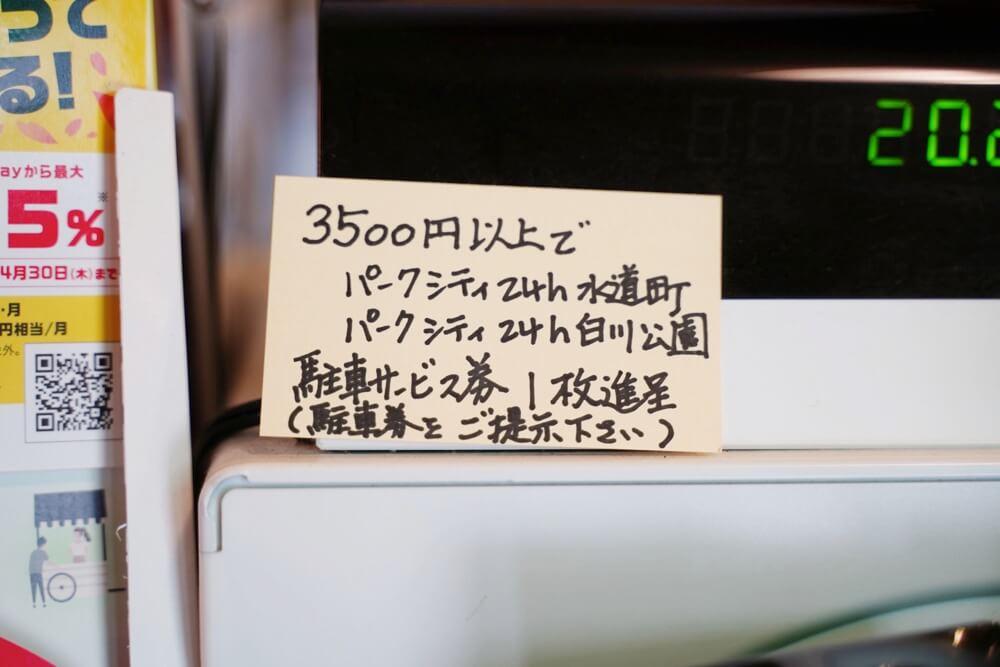 って
る!
ayから最大
5%
※
4月30日(木)まで
・月
円相当/月
外。
20.
3500円以上で
パークシティ24h水道町
パークシティ24h白川公園
駐車サービス券 1枚進呈
(駐車券をご提示下さい)